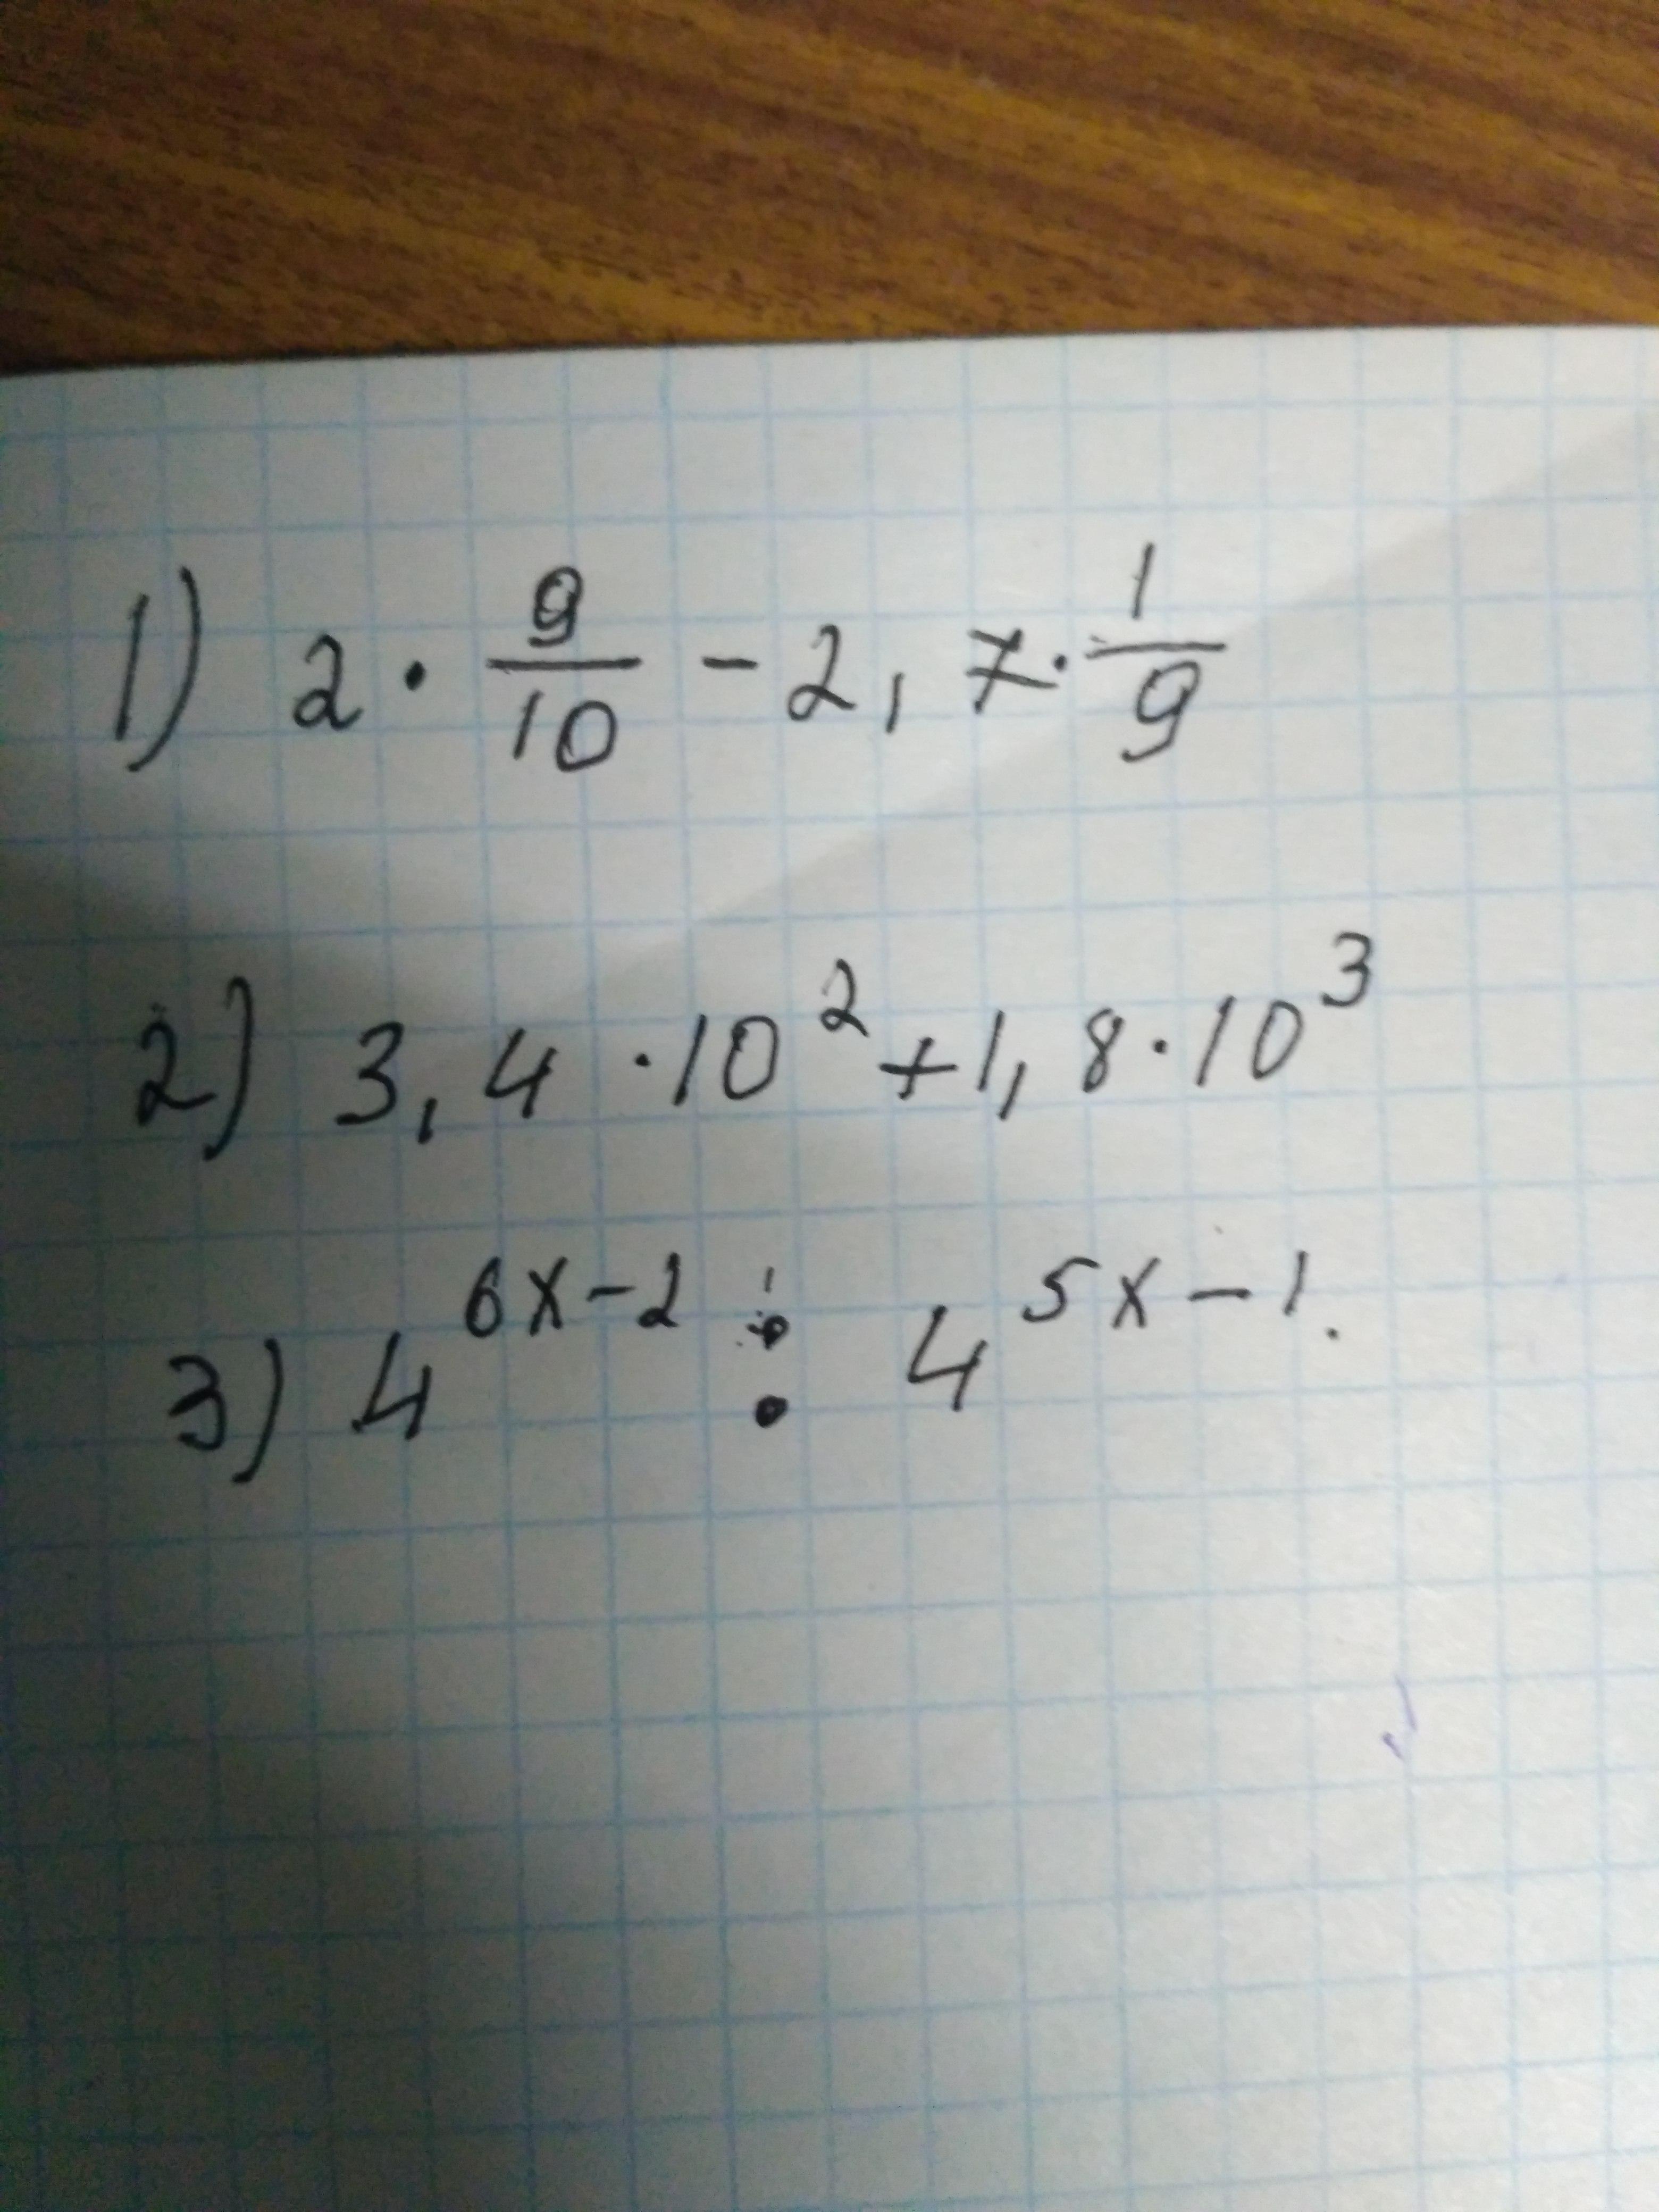 1) 2 · 9/10 - 2,7 · 1/9
2) 3,4 · 10² + 1,8 · 10³
3) 4^(6x-2) : 4^(5x-1).